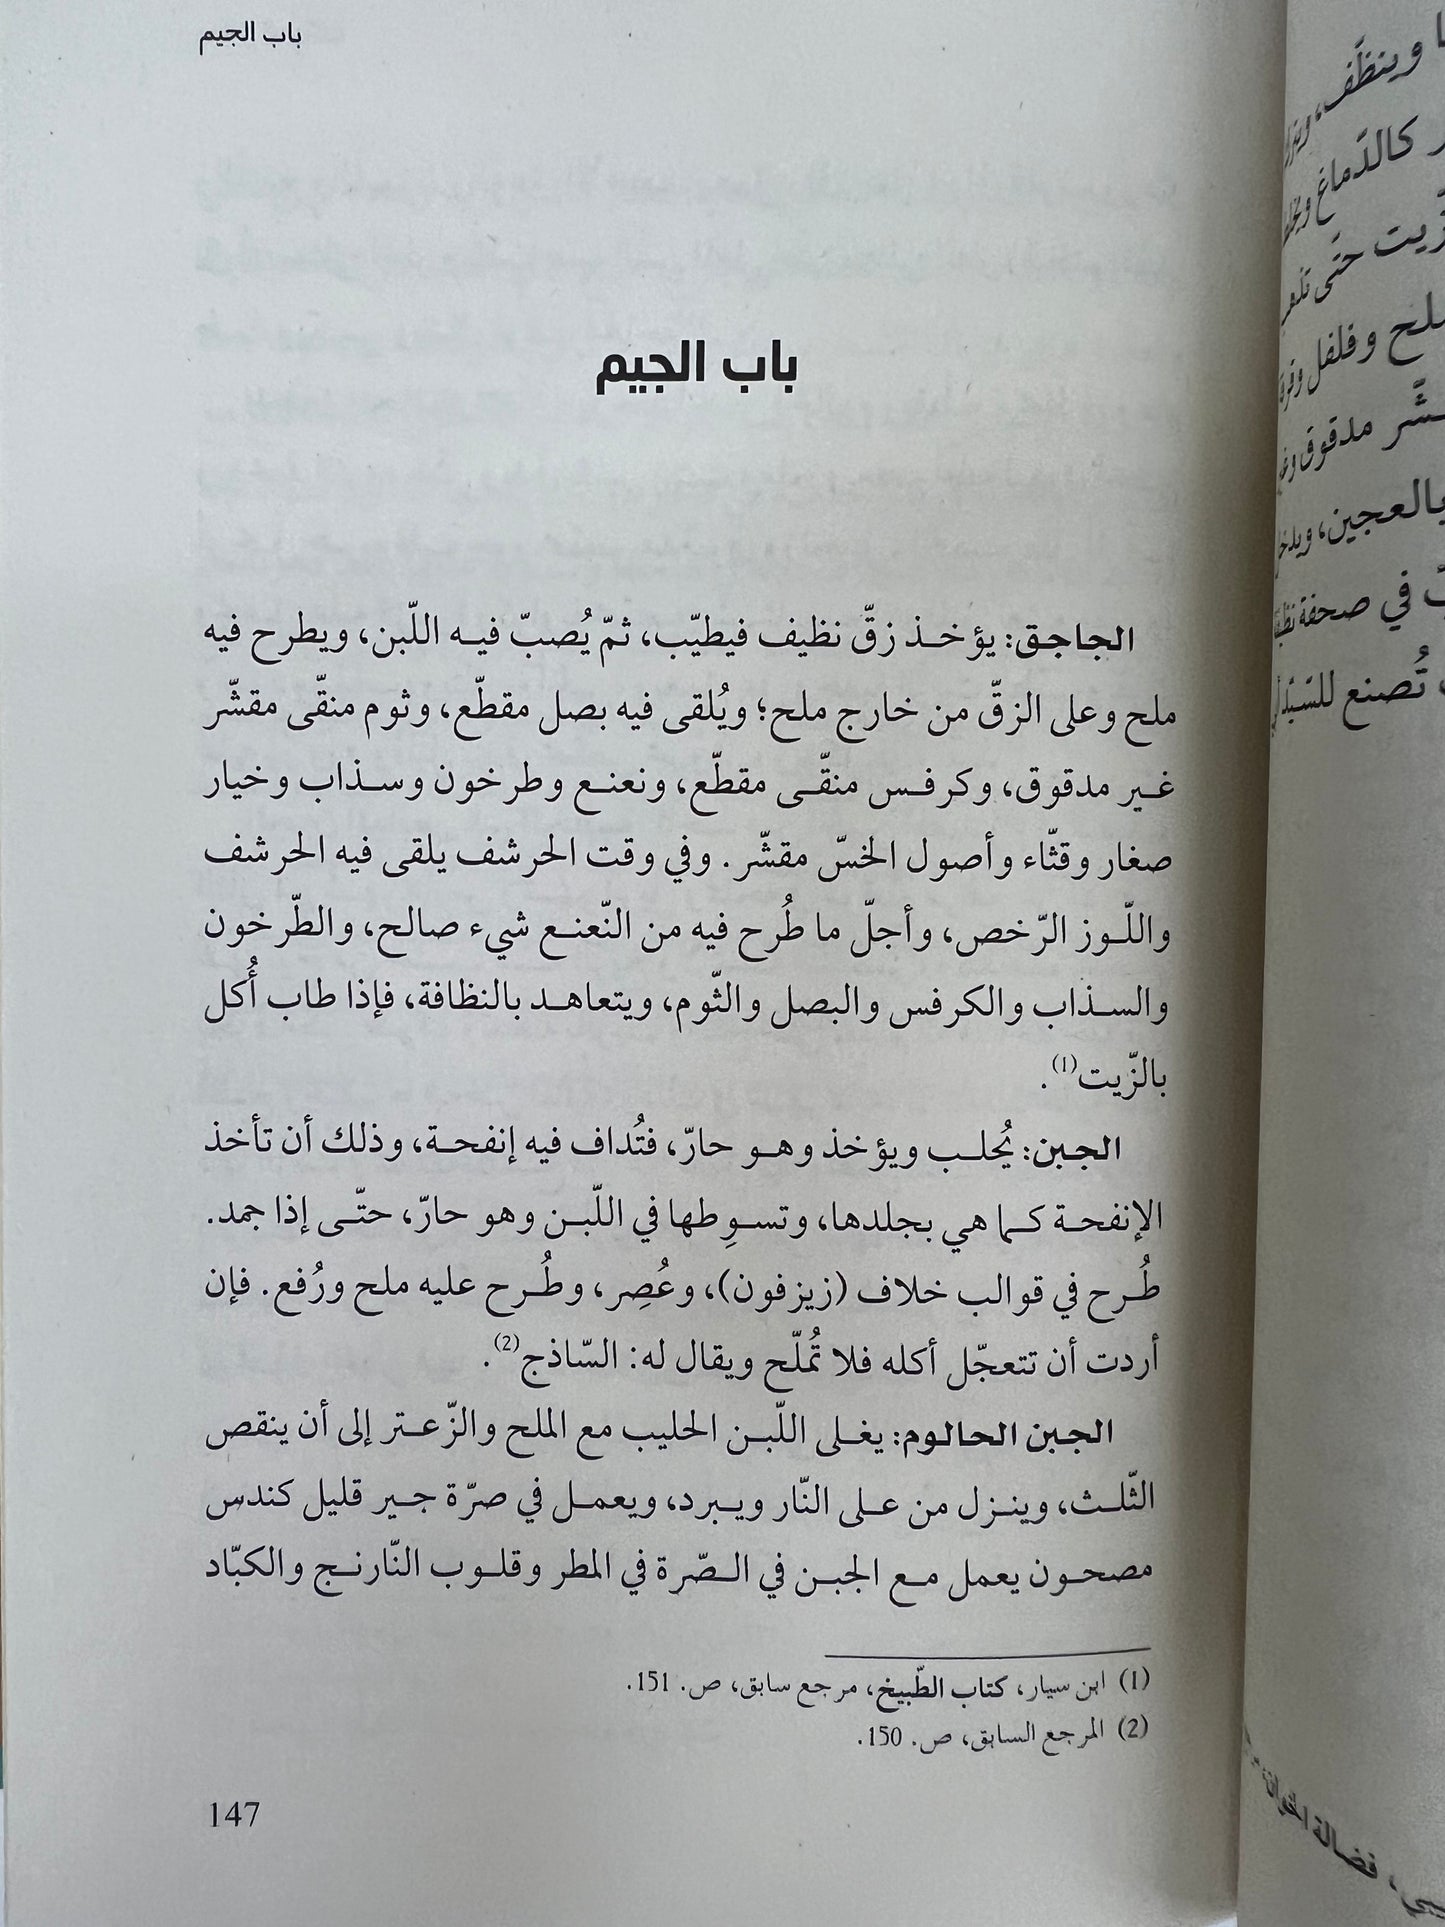 باب الجيم
باب الجيم
الجاجق: يؤخذ زقّ نظيف فيطيّب، ثمّ يُصبّ فيه اللّبن، ويطرح فيه
ملح وعلى الزقّ من خارج ملح؛ ويُلقى فيه بصل مقطّع، وثوم منقّى مقشّر
غير مدقوق، وكرفس منقّى مقطّع، ونعنع وطرخون وسذاب وخيار
صغار وقثّاء وأصول الخسّ مقشّر. وفي وقت الحرشف يلقى فيه الحرشف
واللّوز الرّخص، وأجلّ ما طُرح فيه من النّعنع شيء صالح، والطّرخون
والسذاب والكرفس والبصل والثّوم، ويتعاهد بالنظافة، فإذا طاب أُكل
بالزّيت(1).
الجبن: يُحلب ويؤخذ وهو حارّ، فتُداف فيه إنفحة، وذلك أن تأخذ
الإنفحة كما هي بجلدها، وتسوِطها في اللّبن وهو حارّ، حتّى إذا جمد.
طُرح في قوالب خلاف (زيزفون)، وعُصِر، وطُرح عليه ملح ورُفع. فإن
أردت أن تتعجّل أكله فلا تُملّح ويقال له: السّاذج(2).
الجبن الحالوم: يغلى اللّبن الحليب مع الملح والزّعتر إلى أن ينقص
الثّلث، وينزل من على النّار ويبرد، ويعمل في صرّة جير قليل كندس
مصحون يعمل مع الجبن في الصّرة في المطر وقلوب النّارنج والكبّاد
(1) ابن سيار، كتاب الطّبيخ، مرجع سابق، ص. 151.
(2) المرجع السابق، ص. 150.
147
وينظّف،
كالدّماغ
حتّى
وفلفل
مدقوق
بالعجين،
في صحفة
تُصنع
فضالة الخوان